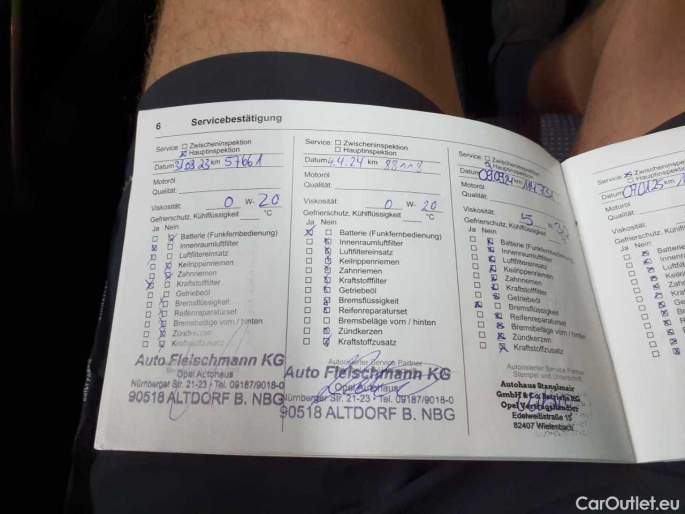 6 Servicebestätigung
Service: Zwischeninspektion
Hauptinspektion
Datum km 57661
Motoröl
Qualität:
Viskosität: 0 W- 20
Gefrierschutz, Kühlflüssigkeit °C
Ja Nein
Batterie (Funkfernbedienung)
Innenraumluftfilter
Luftfiltereinsatz
Keilrippenriemen
Zahnriemen
Kraftstofffilter
Getriebeöl
Bremsflüssigkeit
Reifenreparaturset
Bremsbeläge vorn / hinten
Zündkerzen
Kraftstoffzusatz
Auto Fleischmann KG
Opel Autohaus
Nürnberger Str. 21-23 · Tel. 09187/9018-0
90518 ALTDORF B. NBG
Service: Zwischeninspektion
Hauptinspektion
Datum 4.4.24 km
Motoröl
Qualität:
Viskosität: 0 W- 20
Gefrierschutz, Kühlflüssigkeit °C
Ja Nein
Batterie (Funkfernbedienung)
Innenraumluftfilter
Luftfiltereinsatz
Keilrippenriemen
Zahnriemen
Kraftstofffilter
Getriebeöl
Bremsflüssigkeit
Reifenreparaturset
Bremsbeläge vorn / hinten
Zündkerzen
Kraftstoffzusatz
Autorisierter Service Partner
Auto Fleischmann KG
Opel Autohaus
Nürnberger Str. 21-23 · Tel. 09187/9018-0
90518 ALTDORF B. NBG
Service: Zwischeninspektion
Hauptinspektion
Datum km
Motoröl
Qualität:
Viskosität: 5 W-
Gefrierschutz, Kühlflüssigkeit
Ja Nein
Batterie (Funkfernbedienung)
Innenraumluftfilter
Luftfiltereinsatz
Keilrippenriemen
Zahnriemen
Kraftstofffilter
Getriebeöl
Bremsflüssigkeit
Reifenreparaturset
Bremsbeläge vorn / hinten
Zündkerzen
Kraftstoffzusatz
Autorisierter Service Partner
Stempel und Unterschrift
Autohaus Stanglmair
GmbH & Co. Betriebs KG
Opel Vertragshändler
Edelweißstraße 15
82407 Wielenbach
Service: Zwischeninspektion
Hauptinspektion
Datum km
Motoröl
Qualität:
Viskosität:
Gefrierschutz,
Ja Nein
CarOutlet.eu